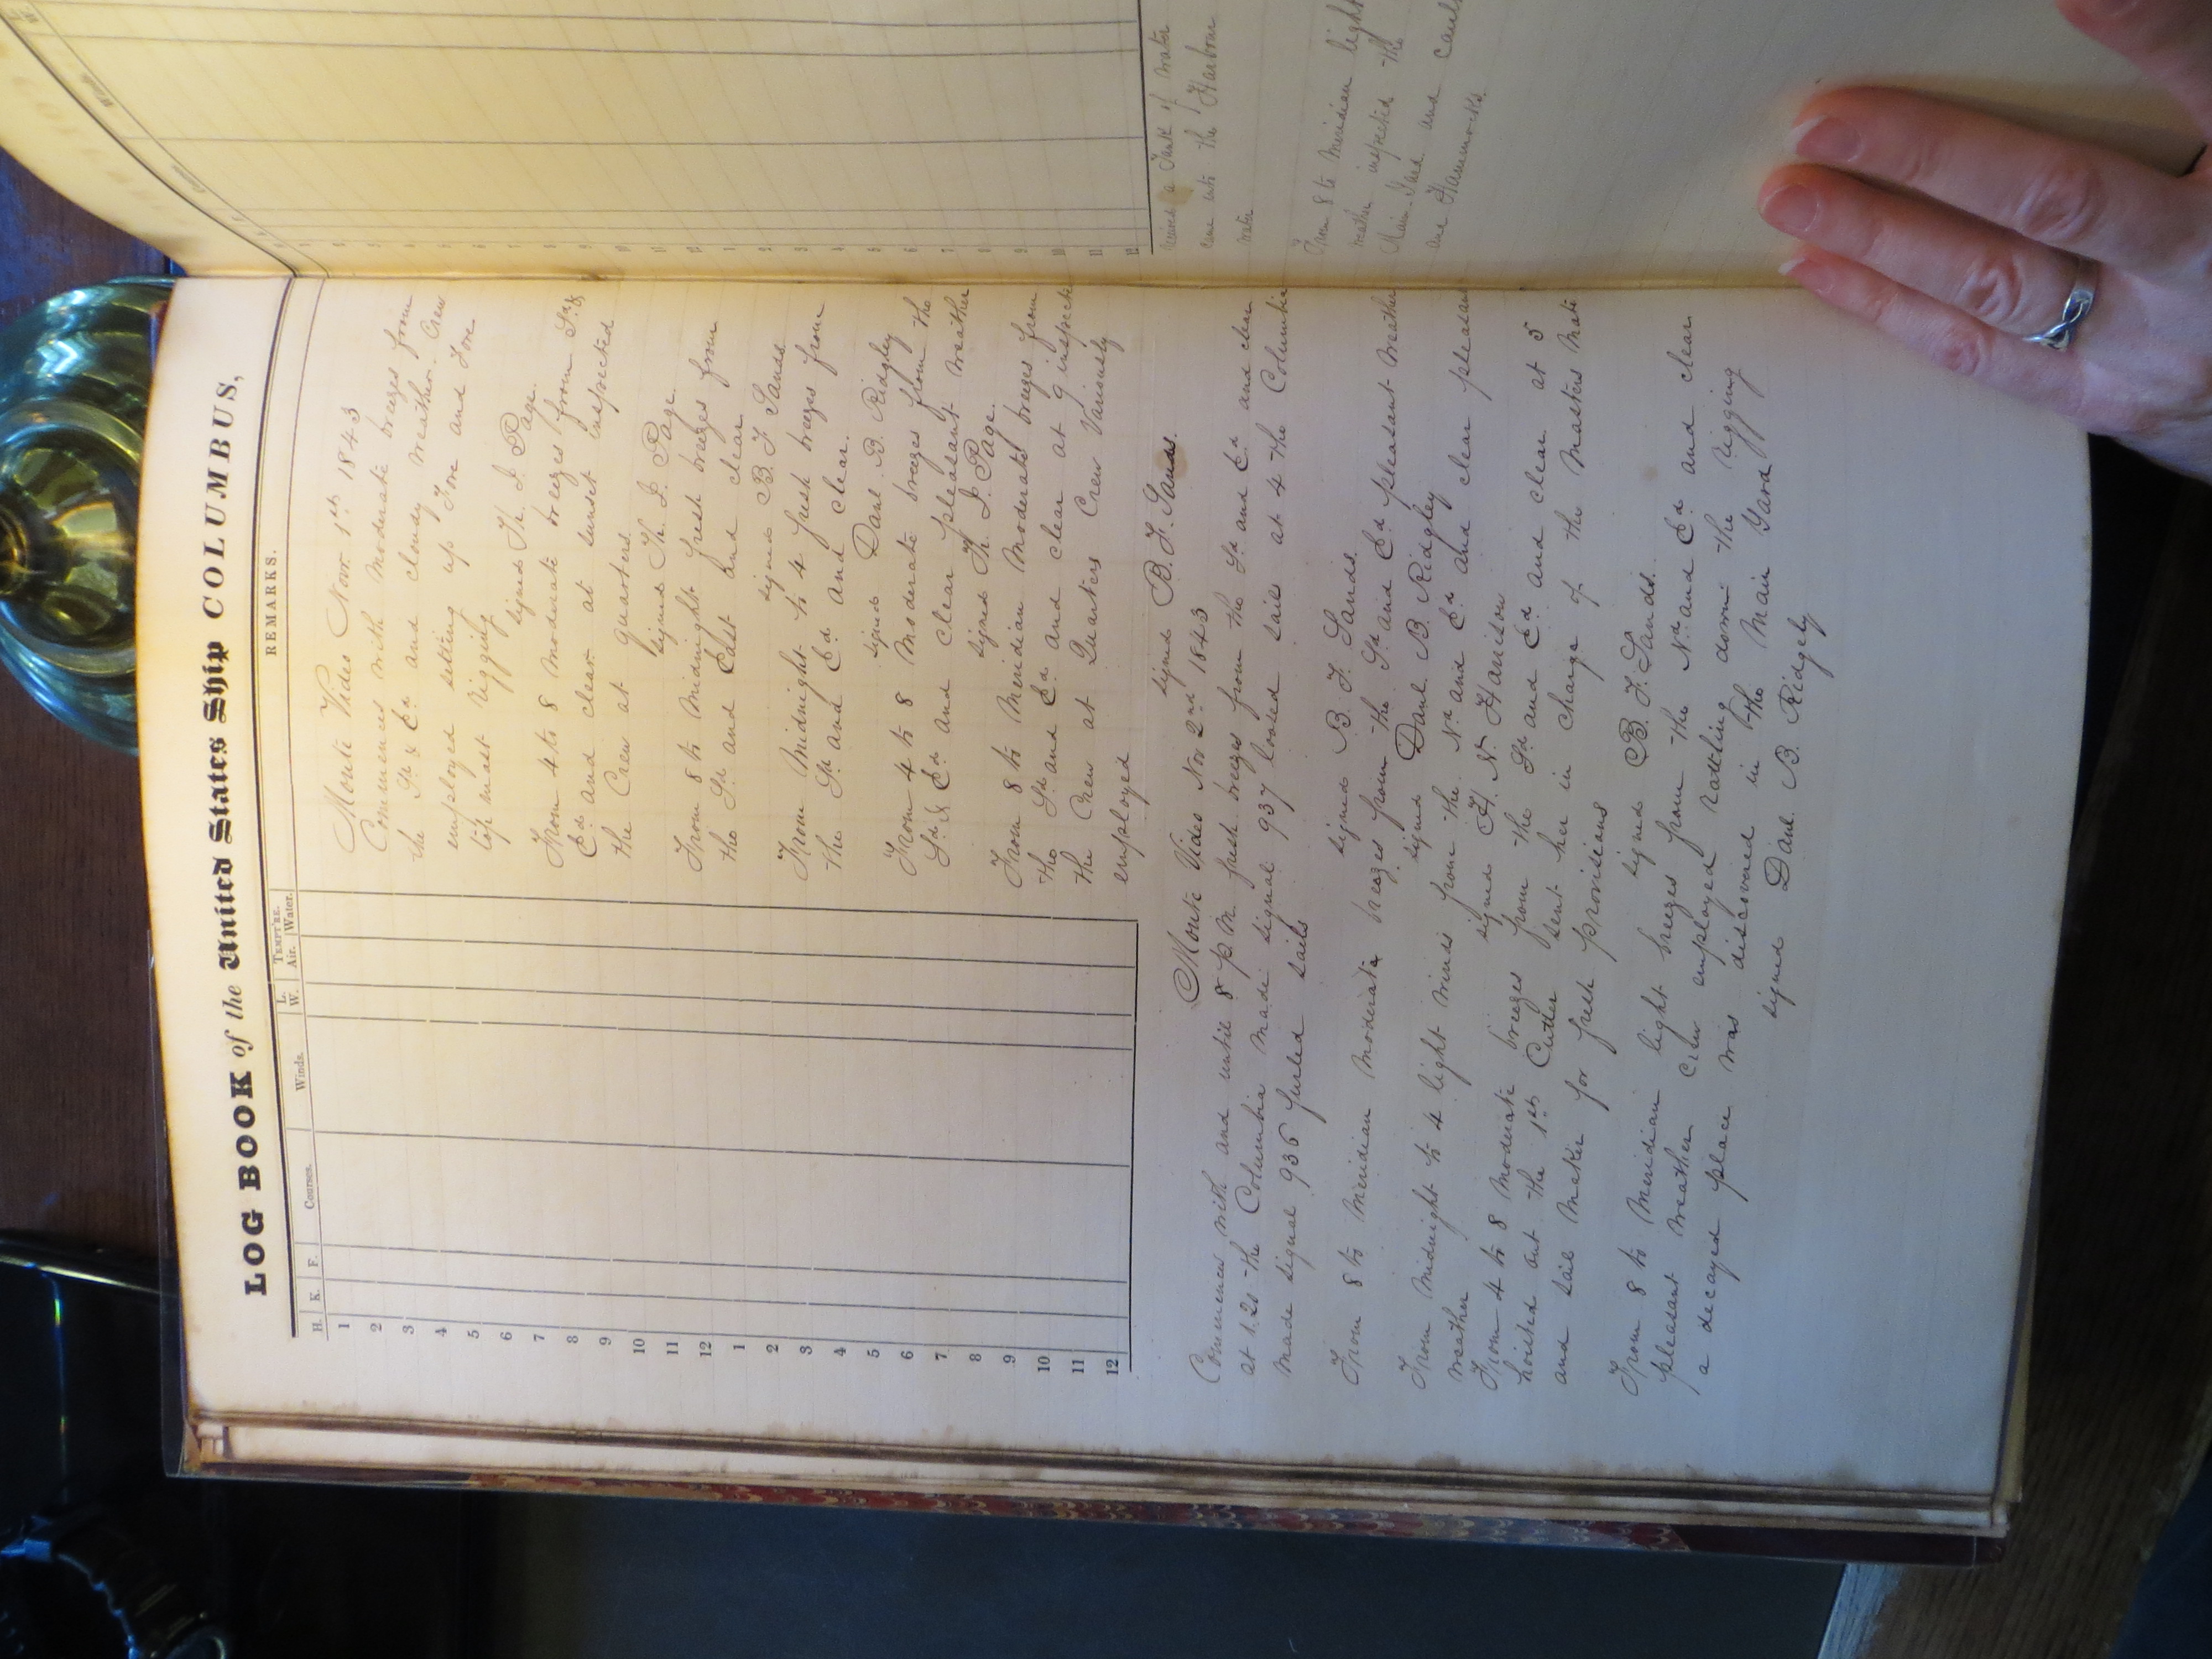 LOG BOOK of the United States Ship COLUMBUS,
H. K. F. Courses. Winds. L. W. TEMPT'RE. Air. Water. REMARKS.
1
2
3
4
5
6
7
8
9
10
11
12
1
2
3
4
5
6
7
8
9
10
11
12
Monte Video Novr 1st 1843
Commences with moderate breezes from
the Sd & Ed and cloudy weather. Crew
employed setting up Fore and Fore
top mast rigging
signed Th. J. Page.
From 4 to 8 moderate breezes from Sd &
Ed and clear at sunset inspected
the Crew at quarters.
signed Th. J. Page
From 8 to Midnight fresh breezes from
the Sd and East and clear
signed B. F. Sands.
From Midnight to 4 fresh breezes from
the Sd and Ed. and clear.
signed Danl B. Ridgley
From 4 to 8 Moderate breezes from the
Sd & Ed and clear pleasant weather
signed Th. J. Page.
From 8 to Meridian Moderate breezes from
the Sd and Ed and clear at 9 inspected
the Crew at Quarters Crew Variously
employed
signed B. F. Sands.
Monte Video Nov 2nd 1843
Commences with and until 8 p.m. fresh breezes from the Sd and Ed and clear
at 1.20 the Columbia made signal 937 loosed sails at 4 the Columbia
made signal 936 furled sails
signed B. F. Sands.
From 8 to Meridian Moderate breezes from the Sd and Ed pleasant weather
signed Danl B. Ridgley
From Midnight to 4 light winds from the Nd and Ed and clear pleasant
weather signed H. N. Harrison
From 4 to 8 Moderate breezes from the Sd and Ed and clear at 5
hoisted out the 1st Cutter sent her in charge of the Masters Mate
and Sail Maker for fresh provisions
signed B. F. Sands.
From 8 to Meridian light breezes from the Nd and Ed and clear
pleasant weather crew employed rattling down the rigging
a decayed place was discovered in the Main Yard
signed Danl. B. Ridgely
1
2
3
4
5
6
7
8
9
10
11
12
1
2
3
4
5
6
7
8
9
10
11
12
Received a Tank of water
came into the Harbour
water
From 8 to Meridian light
weather inspected the
Main Yard and
and Hammocks.